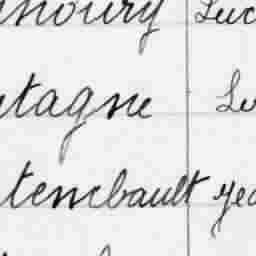 noury Luc
tagne Lu
tenebault Geo